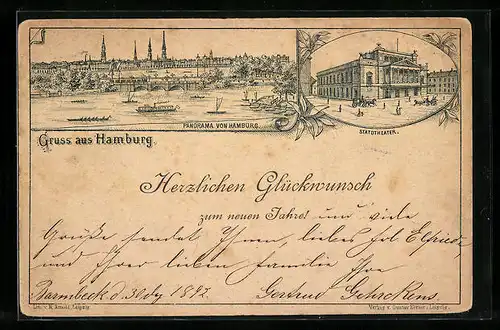 PANORAMA VON HAMBURG.
STADTTHEATER.
Gruss aus Hamburg.
Herzlichen Glückwunsch
zum neuen Jahre! und viele
Grüße sendet Ihnen, liebes Frl Elfriede
und Ihrer lieben Familie Ihre
Barmbeck d. 30 1892. Gertrud Gehrckens
Verlag v. Leipzig.